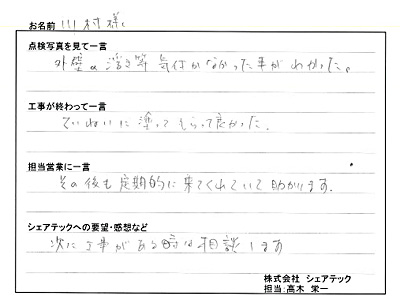 お名前 川村様
点検写真を見て一言
外壁の浮き等気付かなかった事がわかった。
工事が終わって一言
ていねいに塗ってもらって良かった.
担当営業に一言
その後も定期的に来てくれていて助かります.
シェアテックへの要望・感想など
次に工事がある時は相談します
株式会社 シェアテック
担当:高木 栄一